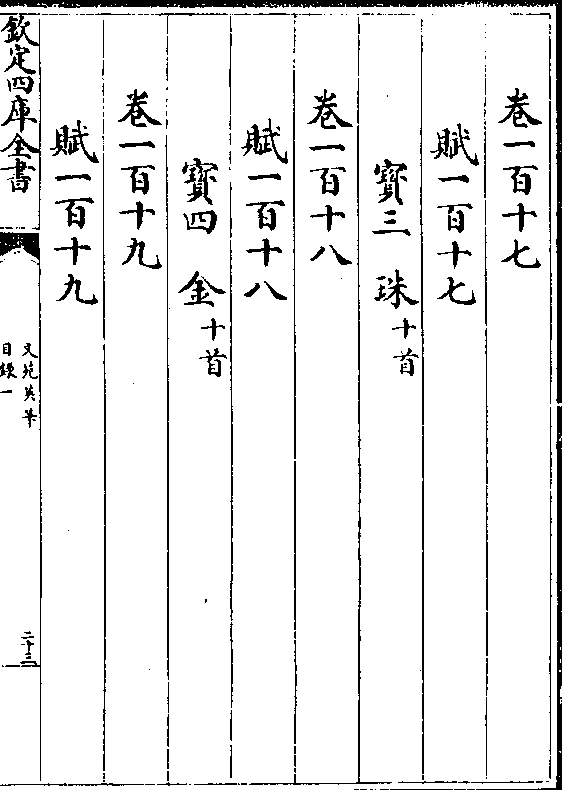 卷一百十七
賦一百十七
寳三　珠十首
卷一百十八
賦一百十八
寳四　金十首
卷一百十九
賦一百十九
欽定四庫全書
文苑英華
目録一
二十三